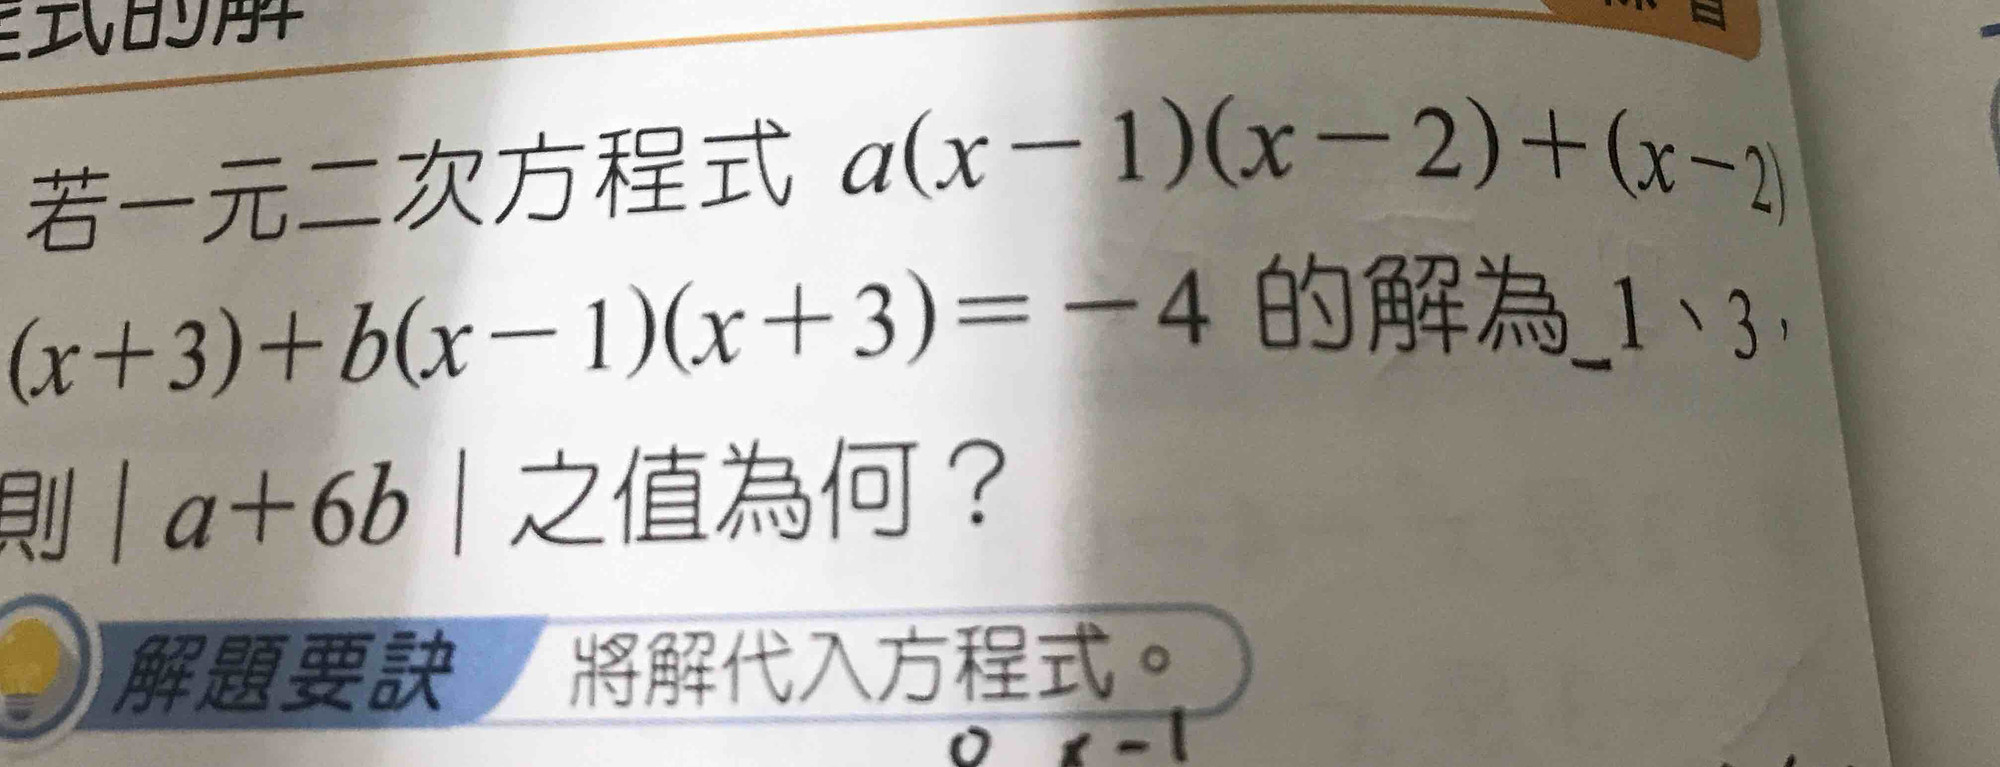 式的解
若一元二次方程式 a(x－1)(x－2)＋(x－2)
(x＋3)＋b(x－1)(x＋3)＝－4 的解為_1、3，
則｜a＋6b｜之值為何？
解題要訣 將解代入方程式。
0 x-1